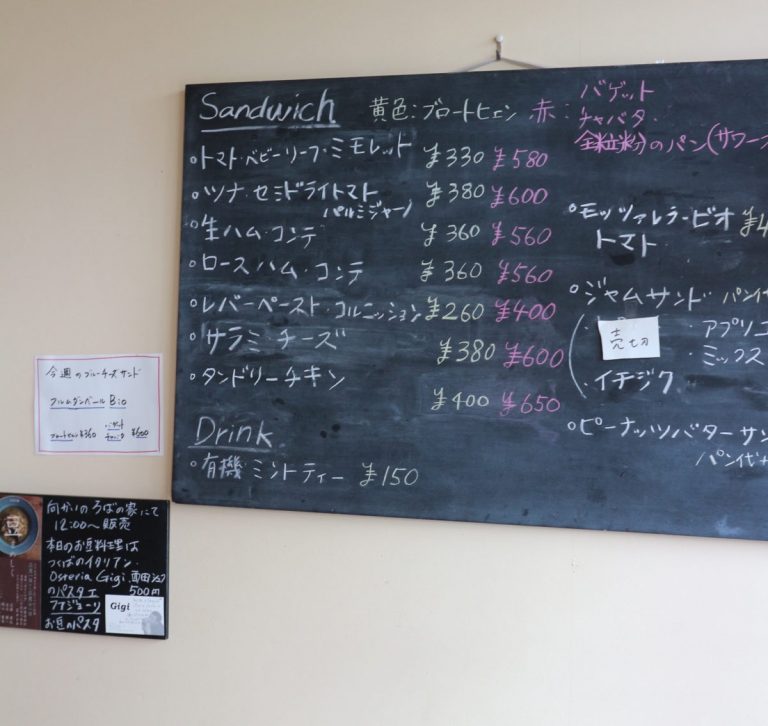 Sandwich 黄色:ブロートヒェン 赤:バゲット
チャバタ
全粒粉のパン(サワー
・トマト・ベビーリーフ・ミモレット ¥330 ¥580
・ツナ・セミドライトマト ¥380 ¥600
パルミジャーノ
・生ハム・コンテ ¥360 ¥560
・ロースハム・コンテ ¥360 ¥560
・レバーペースト・コルニッション ¥260 ¥400
・サラミ・チーズ ¥380 ¥600
・タンドリーチキン ¥400 ¥650
Drink
・有機・ミントティー ¥150
・モッツァレラ・ビオ ¥4
トマト
・ジャムサンド パン代
売切
・アプリコ
・ミックス
・イチジク
・ピーナッツバターサン
パン代+
今週のブルーチーズサンド
フルムダンベール Bio
ブロートヒェン ¥360 バゲット
チャバタ ¥600
向かいのろばの家にて
12:00〜販売
本日のお豆料理は
つくばのイタリアン
Osteria Gigi
のパスタエ 500円
ファジョーリ
お豆のパスタ
Gigi
豆